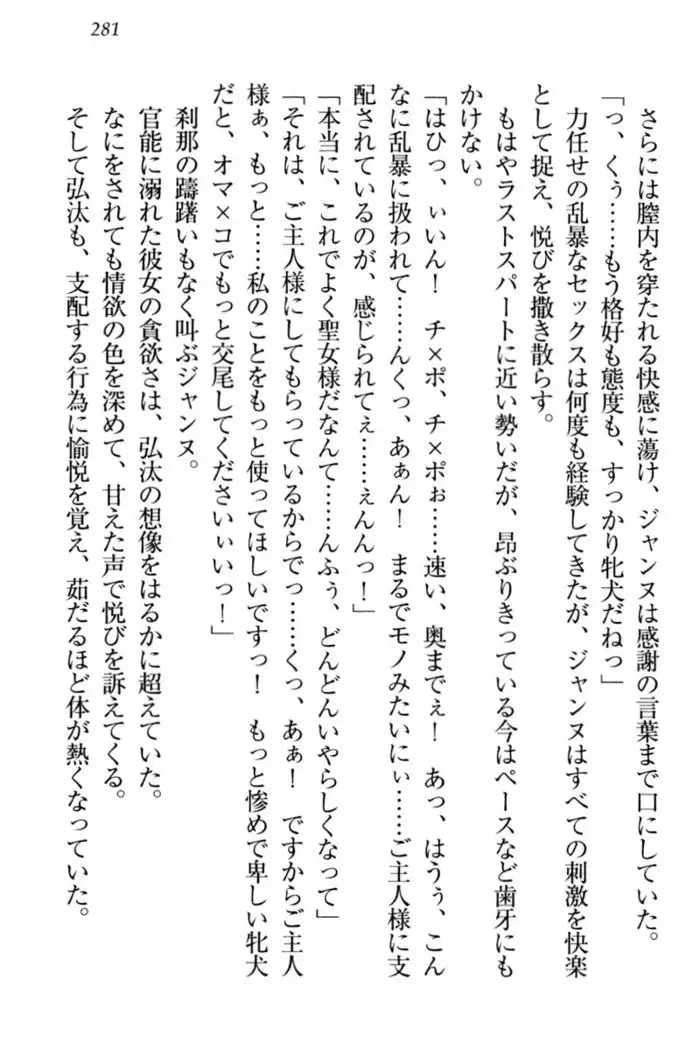 281
さらには膣内を穿たれる快感に蕩け、ジャンヌは感謝の言葉まで口にしていた。
「っ、くぅ……もう格好も態度も、すっかり牝犬だねっ」
力任せの乱暴なセックスは何度も経験してきたが、ジャンヌはすべての刺激を快楽
として捉え、悦びを撒き散らす。
もはやラストスパートに近い勢いだが、昂ぶりきっている今はペースなど歯牙にも
かけない。
「はひっ、ぃいん！　チ×ポ、チ×ポぉ……速い、奥までぇ！　あっ、はうぅ、こん
なに乱暴に扱われて……んくっ、あぁん！　まるでモノみたいにぃ……ご主人様に支
配されているのが、感じられてぇ……ぇんんっ！」
「本当に、これでよく聖女様だなんて……んふぅ、どんどんいやらしくなって」
「それは、ご主人様にしてもらっているからでっ……くっ、あぁ！　ですからご主人
様ぁ、もっと……私のことをもっと使ってほしいですっ！　もっと惨めで卑しい牝犬
だと、オマ×コでもっと交尾してくださいぃいっ！」
刹那の躊躇いもなく叫ぶジャンヌ。
官能に溺れた彼女の貪欲さは、弘汰の想像をはるかに超えていた。
なにをされても情欲の色を深めて、甘えた声で悦びを訴えてくる。
そして弘汰も、支配する行為に愉悦を覚え、茹だるほど体が熱くなっていた。